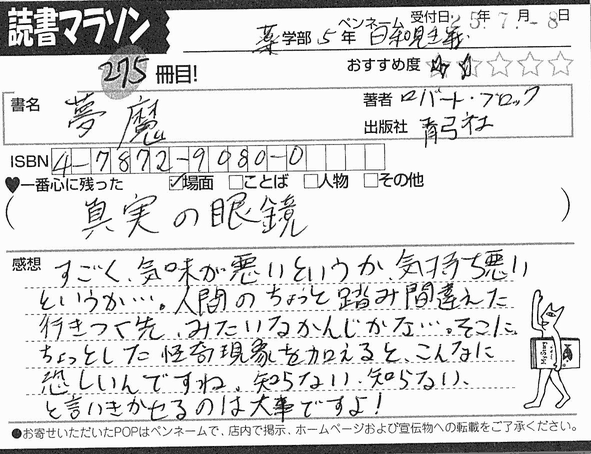 読書マラソン
受付日 25年 7月 -8日
ペンネーム
薬学部 5年 日和見主義
275冊目!
おすすめ度 ★★☆☆☆
書名 夢魔
著者 ロバート・ブロック
出版社 青弓社
ISBN 4-7872-9080-0
♥一番心に残った ☑場面 □ことば □人物 □その他
(真実の眼鏡)
感想 すごく、気味が悪いというか、気持ち悪い
というか…。人間のちょっと踏み間違えた
行きつく先、みたいなかんじかな…。そこに、
ちょっとした怪奇現象を加えると、こんなに
恐しいんですね。知らない、知らない、
と言いきかせるのは大事ですよ!
●お寄せいただいたPOPはペンネームで、店内で掲示、ホームページおよび宣伝物への転載をご了承ください。